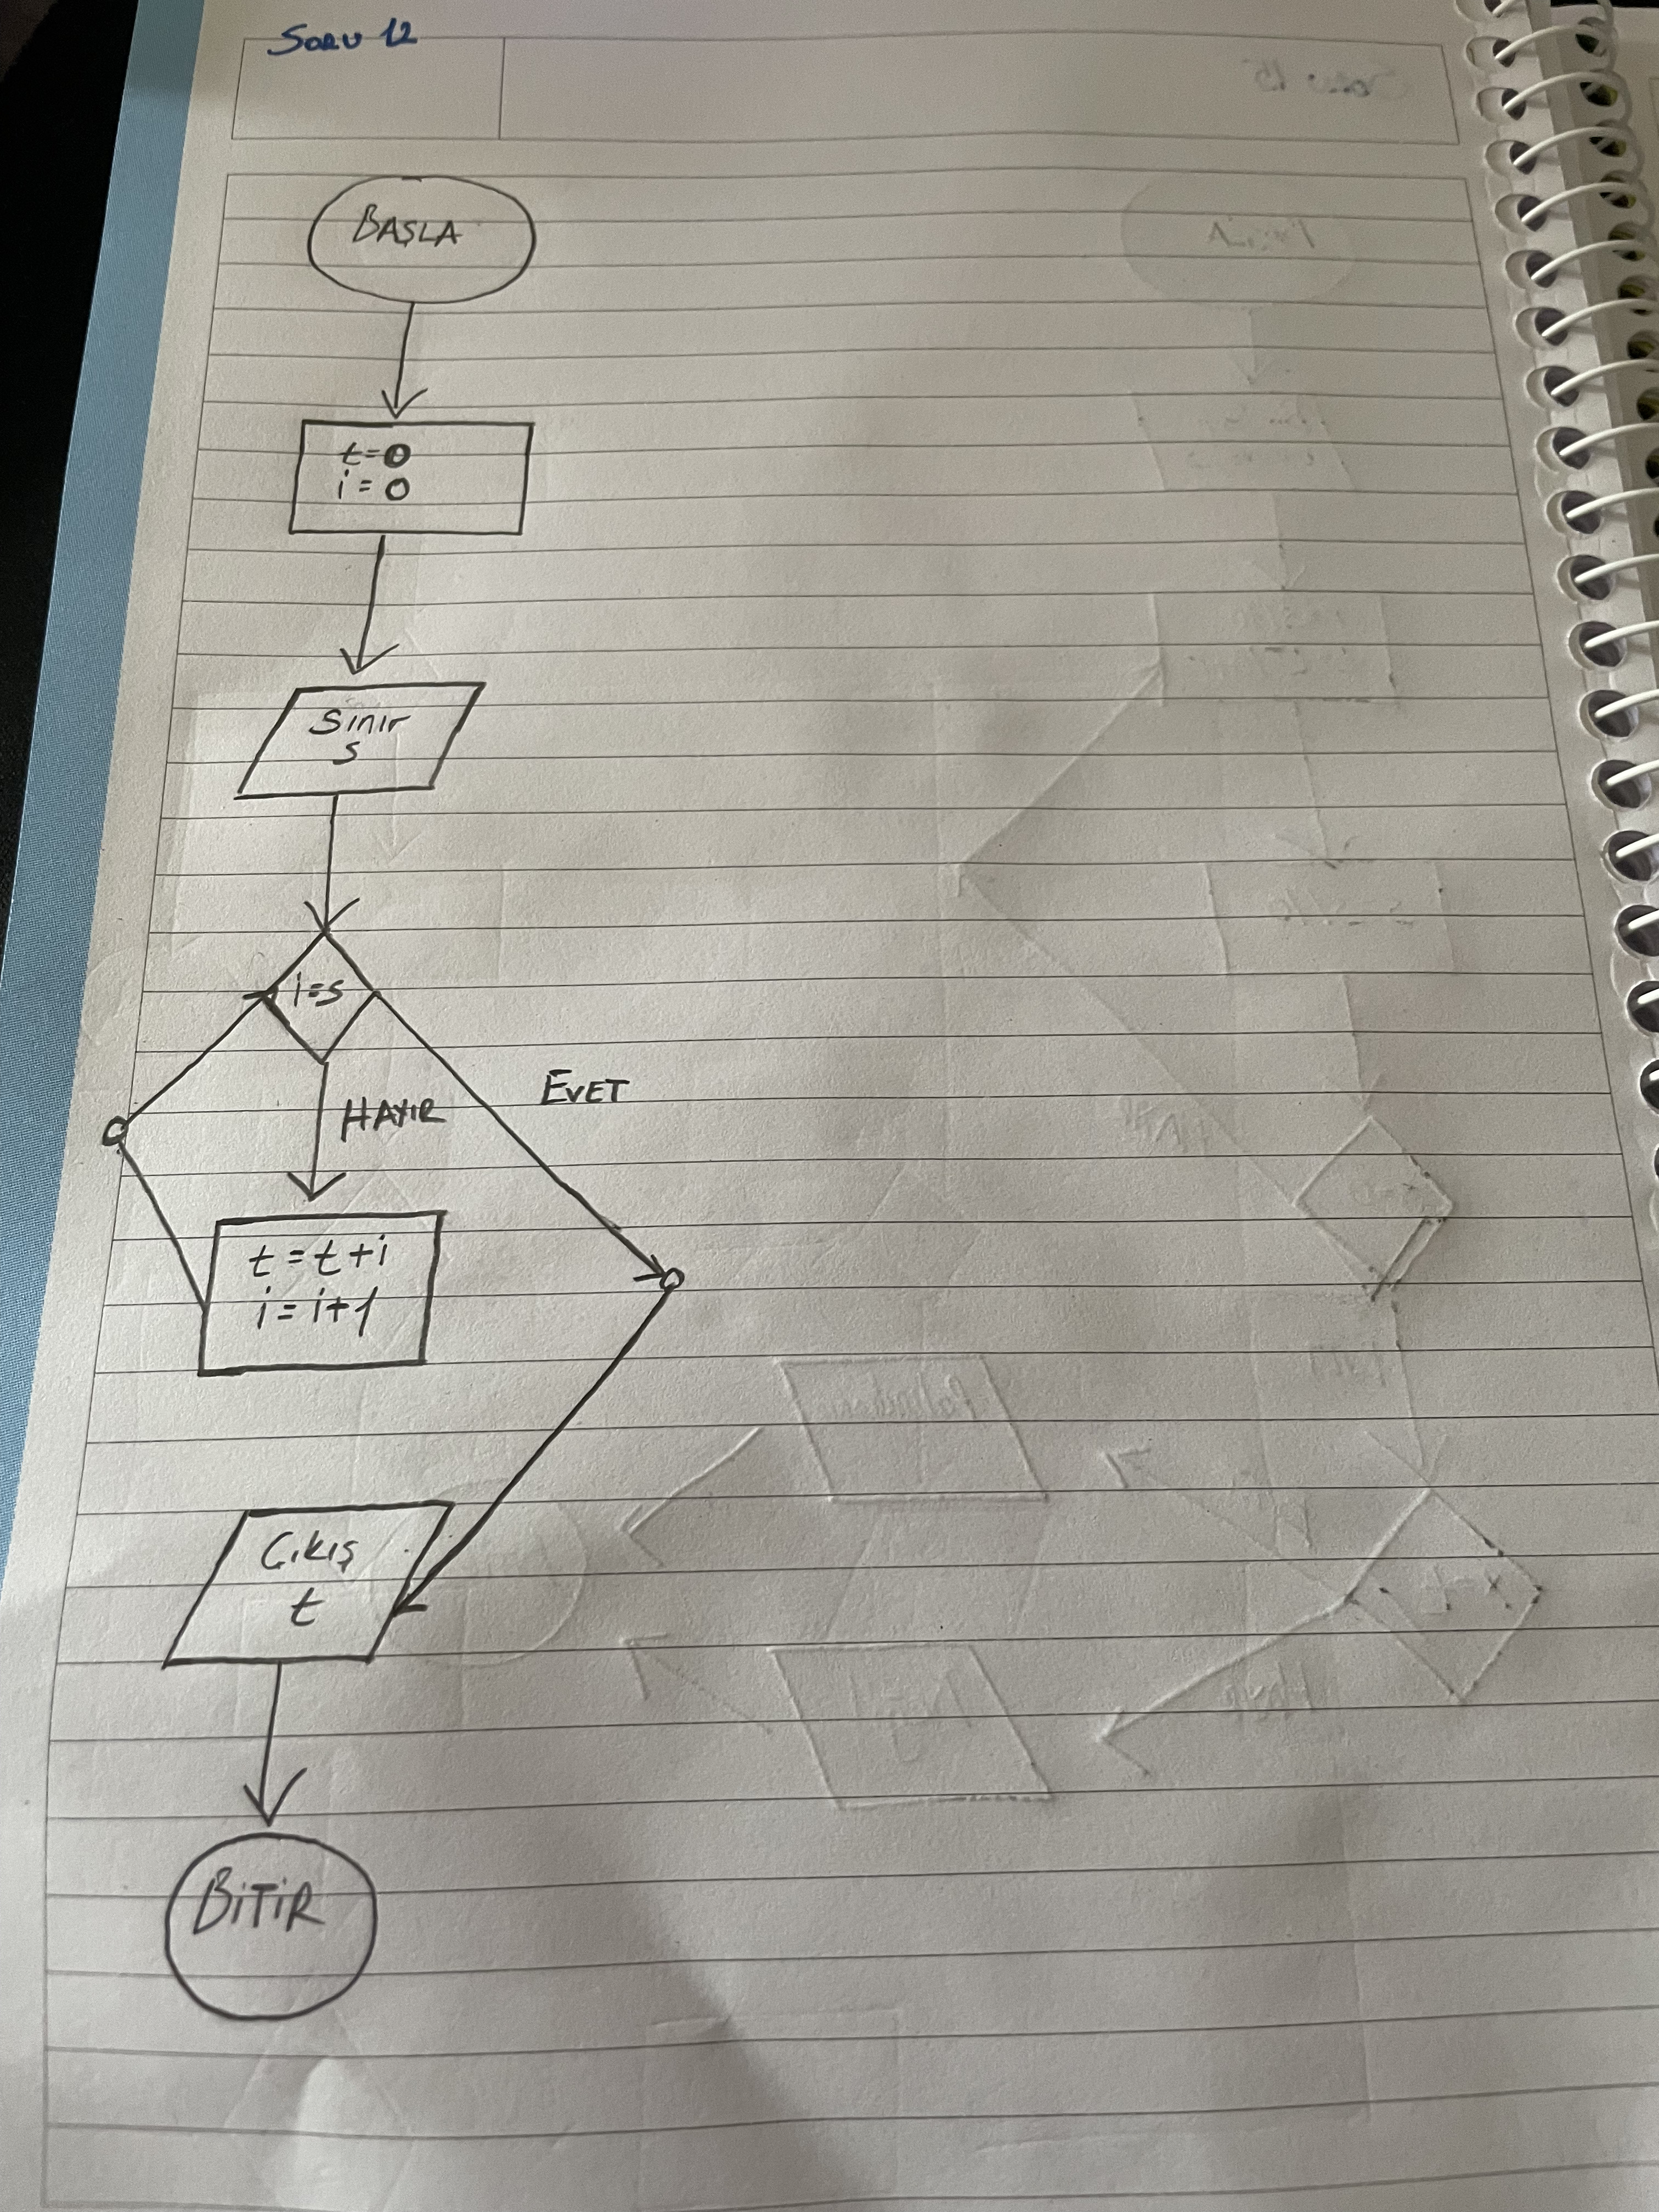 Soru 12
BAŞLA
t=0
i=0
Sınır
s
i=s
HAYIR
EVET
t=t+i
i=i+1
Çıkış
t
BİTİR